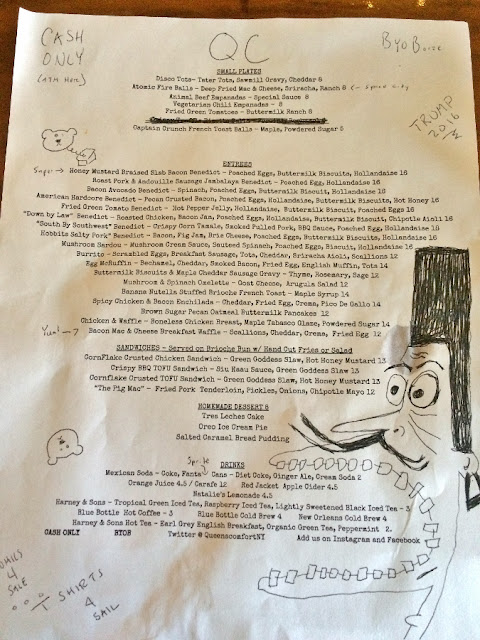 CASH
ONLY
(ATM Here)
QC
BYO Booze
TRUMP
2016
SMALL PLATES
Disco Tots- Tater Tots, Sawmill Gravy, Cheddar 8
Atomic Fire Balls - Deep Fried Mac & Cheese, Sriracha, Ranch 8
Animal Beef Empanadas - Special Sauce 8
Vegetarian Chili Empanadas - 8
Fried Green Tomatoes - Buttermilk Ranch 8
Captain Crunch French Toast Balls - Maple, Powdered Sugar 5
ENTREES
Honey Mustard Braised Slab Bacon Benedict - Poached Eggs, Buttermilk Biscuits, Hollandaise 16
Roast Pork & Andouille Sausage Jambalaya Benedict - Poached Egg, Hollandaise 16
Bacon Avocado Benedict - Spinach, Poached Eggs, Buttermilk Biscuits, Hollandaise 16
American Hardcore Benedict - Pecan Crusted Bacon, Poached Eggs, Hollandaise, Buttermilk Biscuits, Hot Honey 16
Fried Green Tomato Benedict - Hot Pepper Jelly, Hollandaise, Buttermilk Biscuit, Poached Eggs 16
"Down by Law" Benedict - Roasted Chicken, Bacon Jam, Poached Eggs, Hollandaise, Buttermilk Biscuit, Chipotle Aioli 16
"South By Southwest" Benedict - Crispy Corn Tamale, Smoked Pulled Pork, BBQ Sauce, Poached Egg, Hollandaise 18
Hobbits Salty Pork" Benedict - Bacon, Fig Jam, Brie Cheese, Poached Eggs, Buttermilk Biscuits, Hollandaise 16
Mushroom Sardou - Mushroom Cream Sauce, Sauteed Spinach, Poached Eggs, Biscuit, Hollandaise 16
Burrito - Scrambled Eggs, Breakfast Sausage, Tots, Cheddar, Sriracha Aioli, Scallions 12
Egg McMuffin - Bechamel, Cheddar, Smoked Bacon, Fried Egg, English Muffin, Tots 14
Buttermilk Biscuits & Maple Cheddar Sausage Gravy - Thyme, Rosemary, Sage 12
Mushroom & Spinach Omelette - Goat Cheese, Arugula Salad 12
Banana Nutella Stuffed Brioche French Toast - Maple Syrup 14
Spicy Chicken & Bacon Enchilada - Cheddar, Fried Egg, Crema, Pico De Gallo 14
Brown Sugar Pecan Oatmeal Buttermilk Pancakes 12
Chicken & Waffle - Boneless Chicken Breast, Maple Tabasco Glaze, Powdered Sugar 14
Bacon Mac & Cheese Breakfast Waffle - Scallions, Cheddar, Crema, Fried Egg 12
SANDWICHES - Served on Brioche Bun w/ Hand Cut Fries or Salad
CornFlake Crusted Chicken Sandwich - Green Goddess Slaw, Hot Honey Mustard 13
Crispy BBQ TOFU Sandwich - Siu Haau Sauce, Green Goddess Slaw 13
Cornflake Crusted TOFU Sandwich - Green Goddess Slaw, Hot Honey Mustard 13
"The Pig Mac" - Fried Pork Tenderloin, Pickles, Onions, Chipotle Mayo 12
HOMEMADE DESSERT 8
Tres Leches Cake
Oreo Ice Cream Pie
Salted Caramel Bread Pudding
Sprite
DRINKS
Mexican Soda - Coke, Fanta Cans - Diet Coke, Ginger Ale, Cream Soda 2
Orange Juice 4.5 / Carafe 12 Red Jacket Apple Cider 4.5
Natalie's Lemonade 4.5
Harney & Sons - Tropical Green Iced Tea, Raspberry Iced Tea, Lightly Sweetened Black Iced Tea - 3
Blue Bottle Hot Coffee - 3 Blue Bottle Cold Brew 4 New Orleans Cold Brew 4
Harney & Sons Hot Tea - Earl Grey English Breakfast, Organic Green Tea, Peppermint 2.
CASH ONLY BYOB Twitter @QueenscomfortNY Add us on Instagram and Facebook
4
SALE
T SHIRTS
4
SAIL